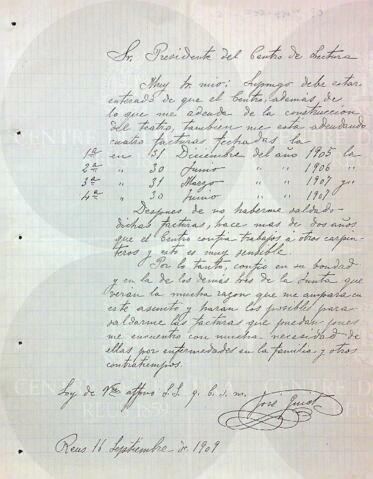 Sr. Presidente del Centro de Lectura
Muy Sr. mio: Supongo debe estar
enterado de que el Centro, además, de
lo que me adeuda de la construcción
del teatro, tambien me esta adeudando
cuatro facturas fechadas la
1ª en 31 Diciembre del año 1905 la
2ª " 30 Junio " " 1906 "
3ª " 31 Marzo " " 1907 y
4ª " 30 Junio " " 1907
Despues de no haberme saldado
dichas facturas, hace mas de dos años
que el Centro contra trabajos á otros carpin-
teros y esto es muy sensible.
Por lo tanto, confio en su bondad
y en la de los demás de la Junta que
verán la mucha razon que me ampara en
este asunto y harán los posibles para
saldarme las facturas que puedan, pues
me encuentro con mucha necesidad de
ellas por enfermedades en la familia y otros
contratiempos.
Soy de affmo S.S. q. b. s. m.
José
Reus 16 Septiembre de 1909
CENTRE DE
REUS 1859